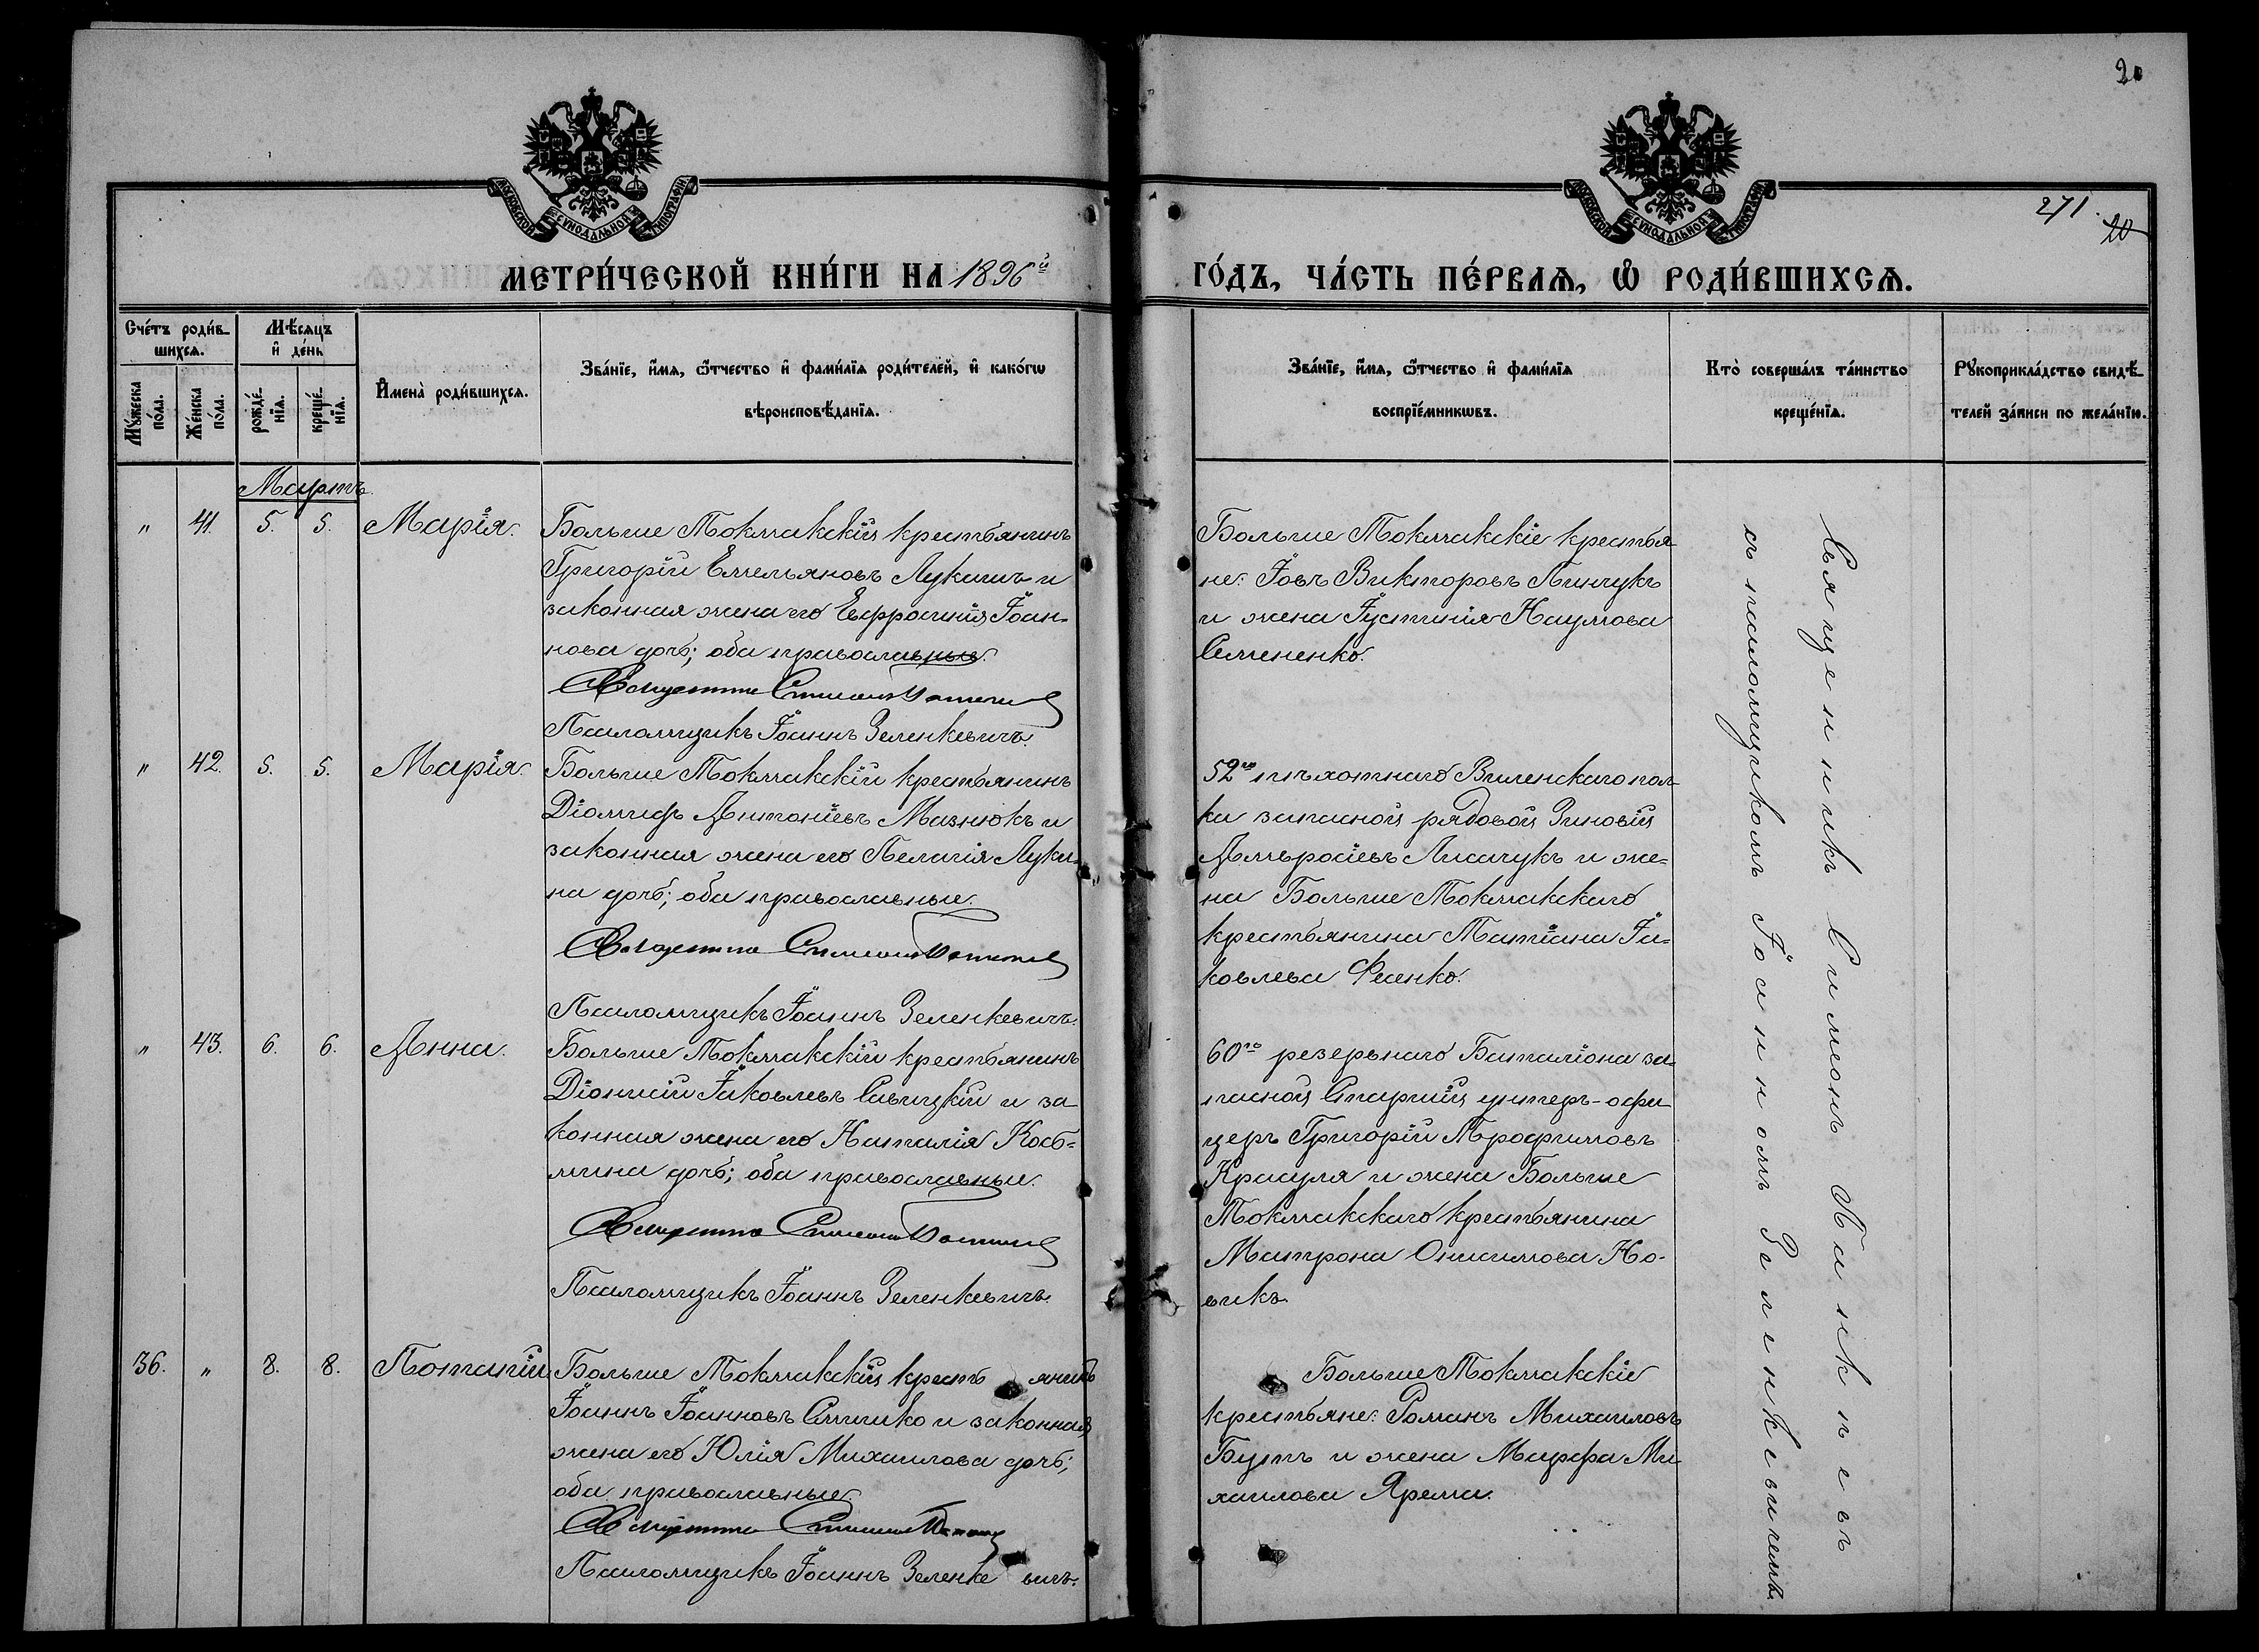 20
МОСКОВСКОЙ СѴНОДАЛЬНОЙ ТИПОГРАФІИ
МОСКОВСКОЙ СѴНОДАЛЬНОЙ ТИПОГРАФІИ
271.
20
МЕТРИ́ЧЕСКОЙ КНИ́ГИ НА 1896й
ГО́ДЪ, ЧА́СТЬ ПЕ́РВАѦ, Ѡ҆ РОДИ́ВШИХСѦ.
Сче́тъ роди́в-
шихсѧ.
Мꙋ́жеска по́ла.
Же́нска по́ла.
Мѣ́сѧцъ
и҆ де́нь
рожде́-
нїѧ.
креще́-
нїѧ.
И҆мена̀ роди́вшихсѧ.
Зва́нїе, и҆́мѧ, ѻ҆́тчество и҆ фами́лїѧ роди́телей, и҆ како́гѡ
вѣроисповѣ́данїѧ.
Зва́нїе, и҆́мѧ, ѻ҆́тчество и҆ фами́лїѧ
воспрїе́мникѡвъ.
Кто̀ соверша́лъ та́инство
креще́нїѧ.
Рꙋкоприкла́дство свидѣ́-
телей за́писи по жела́нїю.
Мартъ.
" 41. 5. 5. Марія.
Больше Токмакскій крестьянинъ
Григорій Емельяновъ Лукашъ и
законная жена его Евфросинія Іоан-
нова дочь; оба православные.
Священникъ Симеонъ
Псаломщикъ Іоаннъ Зеленкевичъ.
Больше Токмакскіе крестья-
не: Іовъ Викторовъ Пинчукъ
и жена Іустинія Наумова
Семененко.
" 42. 5. 5. Марія.
Больше Токмакскій крестьянинъ
Діомидъ Антоніевъ Мазнюкъ и
законная жена его Пелагія Луки-
на дочь; оба православные.
Священникъ Симеонъ
Псаломщикъ Іоаннъ Зеленкевичъ.
52го пѣхотнаго Виленскаго пол-
ка запасной рядовой Зиновій
Амвросіевъ Лисачукъ и же-
на Больше Токмакскаго
крестьянина Татіана Іа-
ковлева Фесенко.
" 43. 6. 6. Анна.
Больше Токмакскій крестьянинъ
Діонисій Іаковлевъ Савицкій и за-
конная жена его Наталія Кось-
мина дочь; оба православные.
Священникъ Симеонъ
Псаломщикъ Іоаннъ Зеленкевичъ.
60го резервнаго Баталіона за-
пасной Старшій унтеръ-офи-
церъ Григорій Трофимовъ
Красуля и жена Больше
Токмакскаго крестьянина
Матрона Онисимова Но-
викъ.
36. " 8. 8. Потапій
Больше Токмакскій кресть янинъ
Іоаннъ Іоанновъ Сташко и законная
жена его Юлія Михаилова дочь;
оба православные.
Священникъ Симеонъ
Псаломщикъ Іоаннъ Зеленке вичъ.
Больше Токмакскіе
крестьяне: Романъ Михаиловъ
Бутъ и жена Марфа Ми-
хаилова Ярема.
Священникъ Симеонъ
съ псаломщикомъ Іоанномъ Зеленкевичемъ.